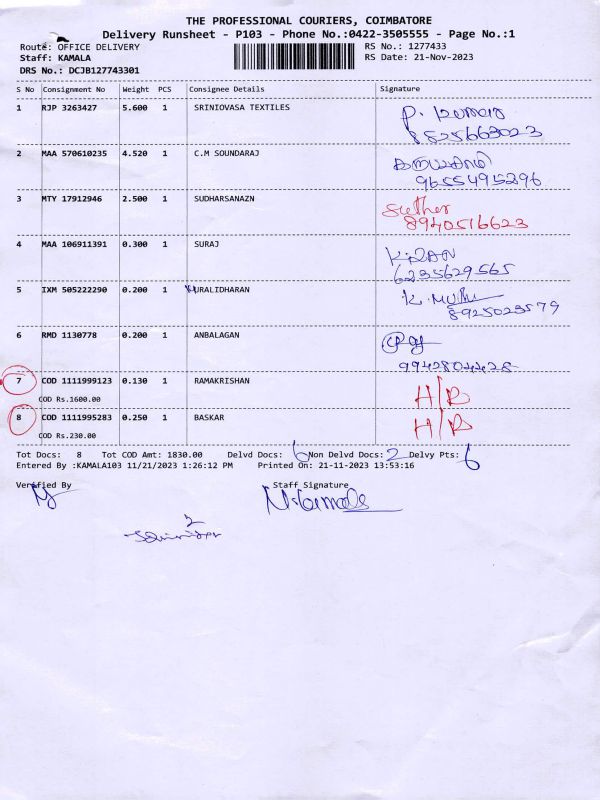 THE PROFESSIONAL COURIERS, COIMBATORE
Delivery Runsheet - P103 - Phone No.:0422-3505555 - Page No.:1
Route: OFFICE DELIVERY
RS No.: 1277433
Staff: KAMALA
RS Date: 21-Nov-2023
DRS No.: DCJB127743301
S No Consignment No Weight PCS Consignee Details Signature
1 RJP 3263427 5.600 1 SRINIOVASA TEXTILES P. Kumar
8825663023
2 MAA 570610235 4.520 1 C.M SOUNDARAJ
9655495296
3 MTY 17912946 2.500 1 SUDHARSANAZN Suther
8940516623
4 MAA 106911391 0.300 1 SURAJ KIRAN
6235629565
5 IXM 505222290 0.200 1 MURALIDHARAN K. Muthu
8925023579
6 RMD 1130778 0.200 1 ANBALAGAN
9942804428
7 COD 1111999123 0.130 1 RAMAKRISHAN H/R
COD Rs.1600.00
8 COD 1111995283 0.250 1 BASKAR H/R
COD Rs.230.00
Tot Docs: 8 Tot COD Amt: 1830.00 Delvd Docs: 6 Non Delvd Docs: 2 Delvy Pts: 6
Entered By :KAMALA103 11/21/2023 1:26:12 PM Printed On: 21-11-2023 13:53:16
Verified By Staff Signature
N. Kamala
2